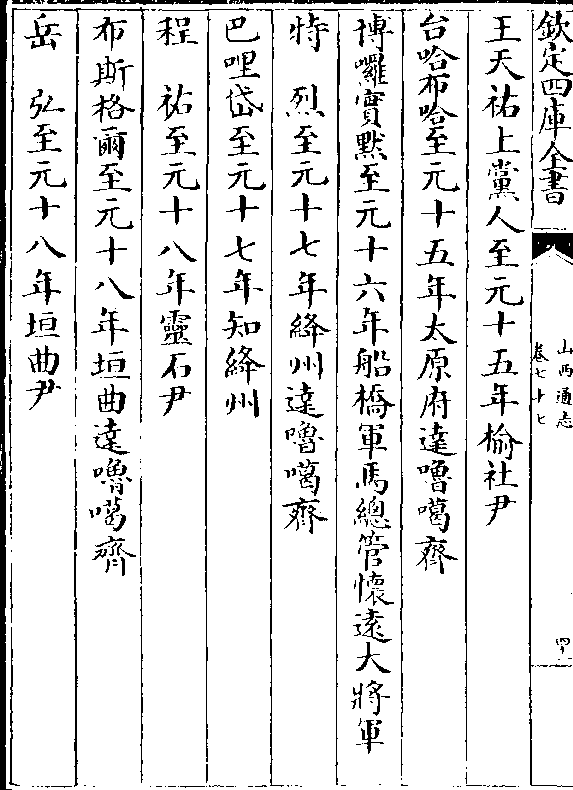 欽定四庫全書
山西通志
卷七十七
四
王天祐上黨人至元十五年榆社尹
台哈布哈至元十五年太原府達嚕噶齊
博囉實黙至元十六年船橋軍馬總管懷遠大將軍
特　烈至元十七年絳州達嚕噶齊
巴哩岱至元十七年知絳州
程　祐至元十八年靈石尹
布斯格爾至元十八年垣曲達嚕噶齊
岳　弘至元十八年垣曲尹